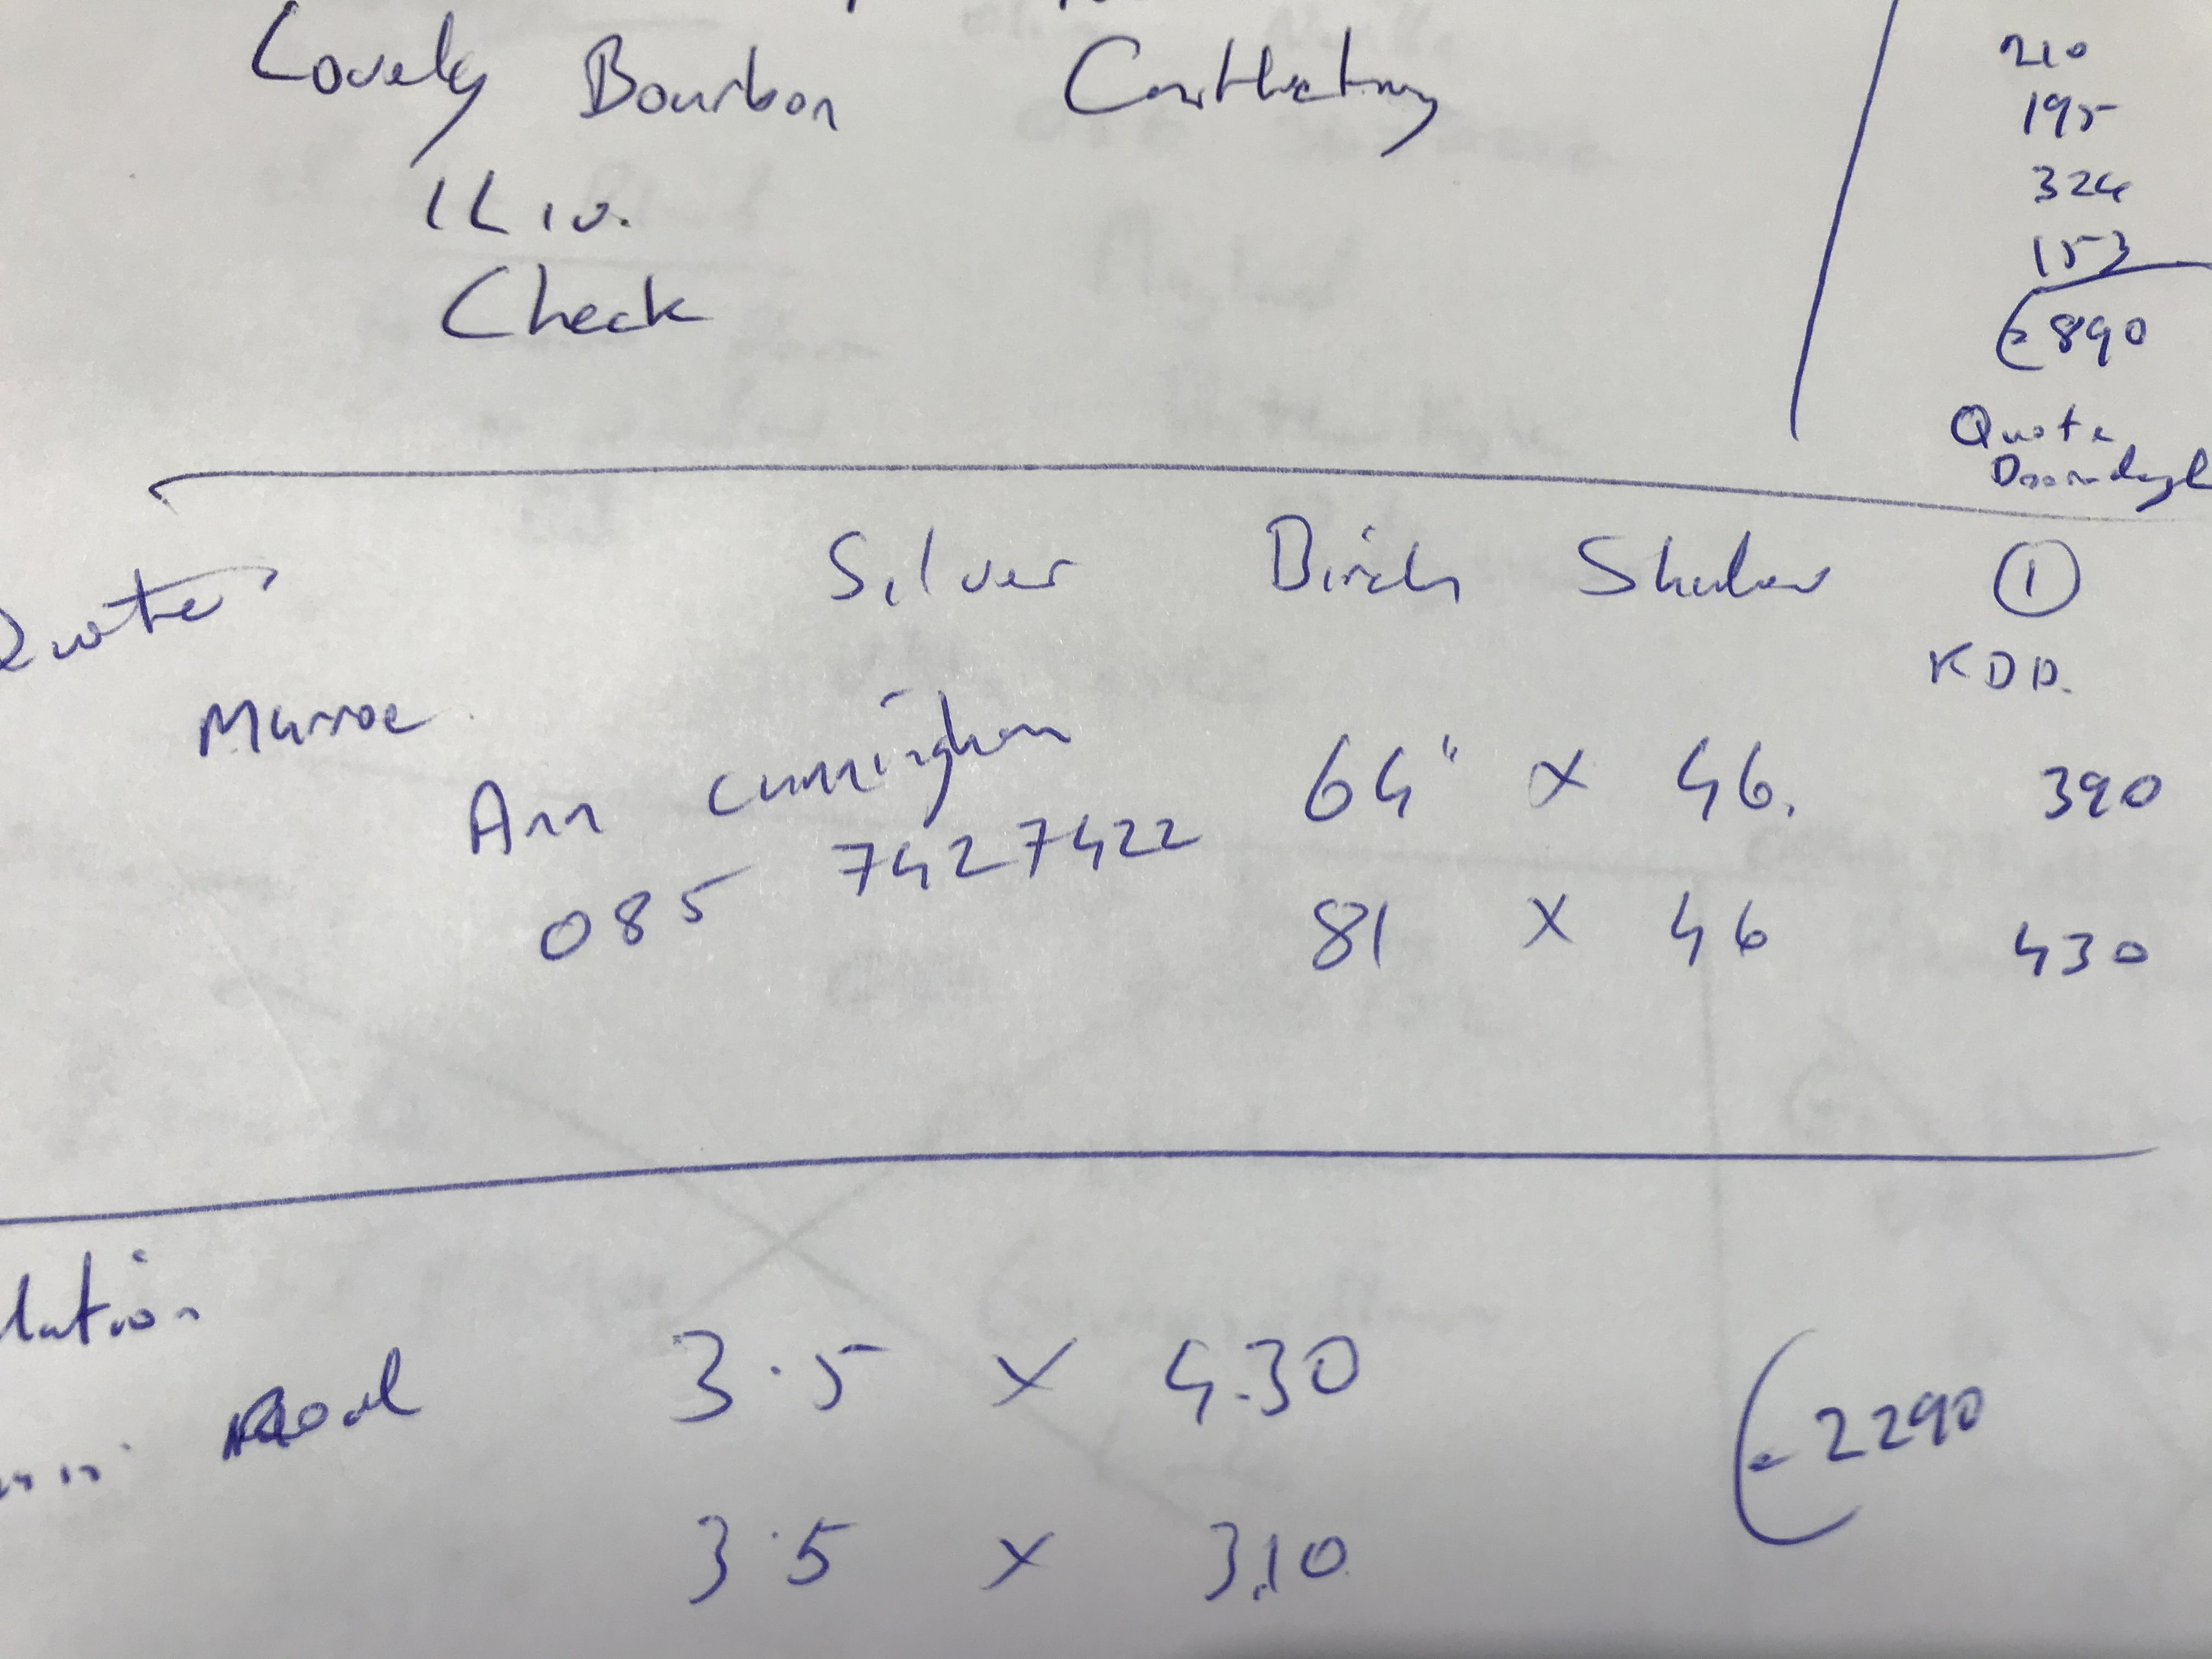 Lovely Bourbon
Check
210
195
324
153
€890
Quote
Quote
Silver Birch
①
KDD.
Murroe
Ann Cunningham
085 7427422
64" x 46.
390
81 x 46
430
lation
Road
3.5 x 4.30
€2290
3.5 x 3.10